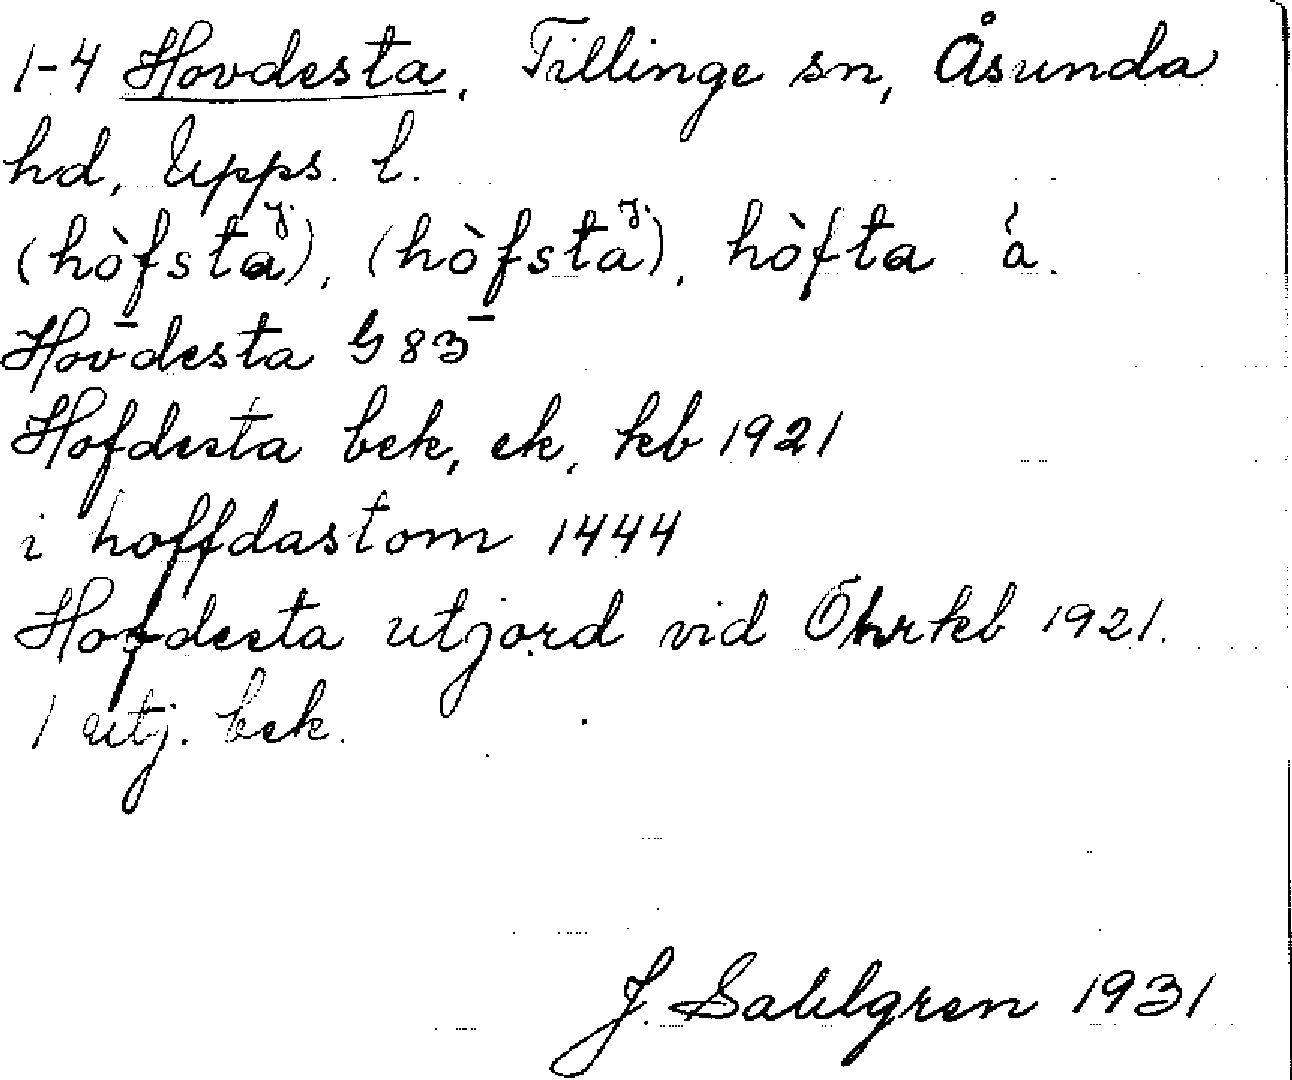 1-4 Hovdesta, Tillinge sn, Åsunda
hd, Upps. l.
(hòfsta j.), (hòfsta j.), hòfta á.
Hovdesta G 83
Hofdesta bek, ek, kb 1921
i hoffdastom 1444
Hofdesta utjord vid Öhrkb 1921.
1 utj. bek.
J. Sahlgren 1931